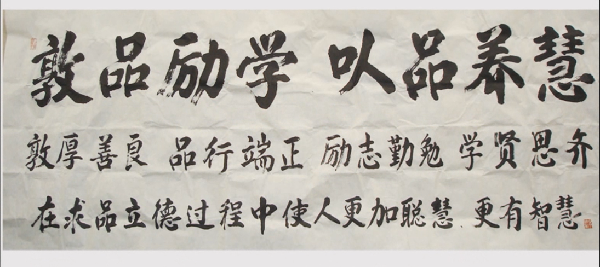 敦品励学 以品养慧
敦厚善良 品行端正 励志勤勉 学贤思齐
在求品立德过程中使人更加聪慧.更有智慧